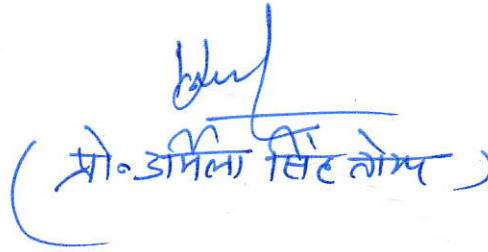 (प्रो॰ उर्मिला सिंह तोमर)